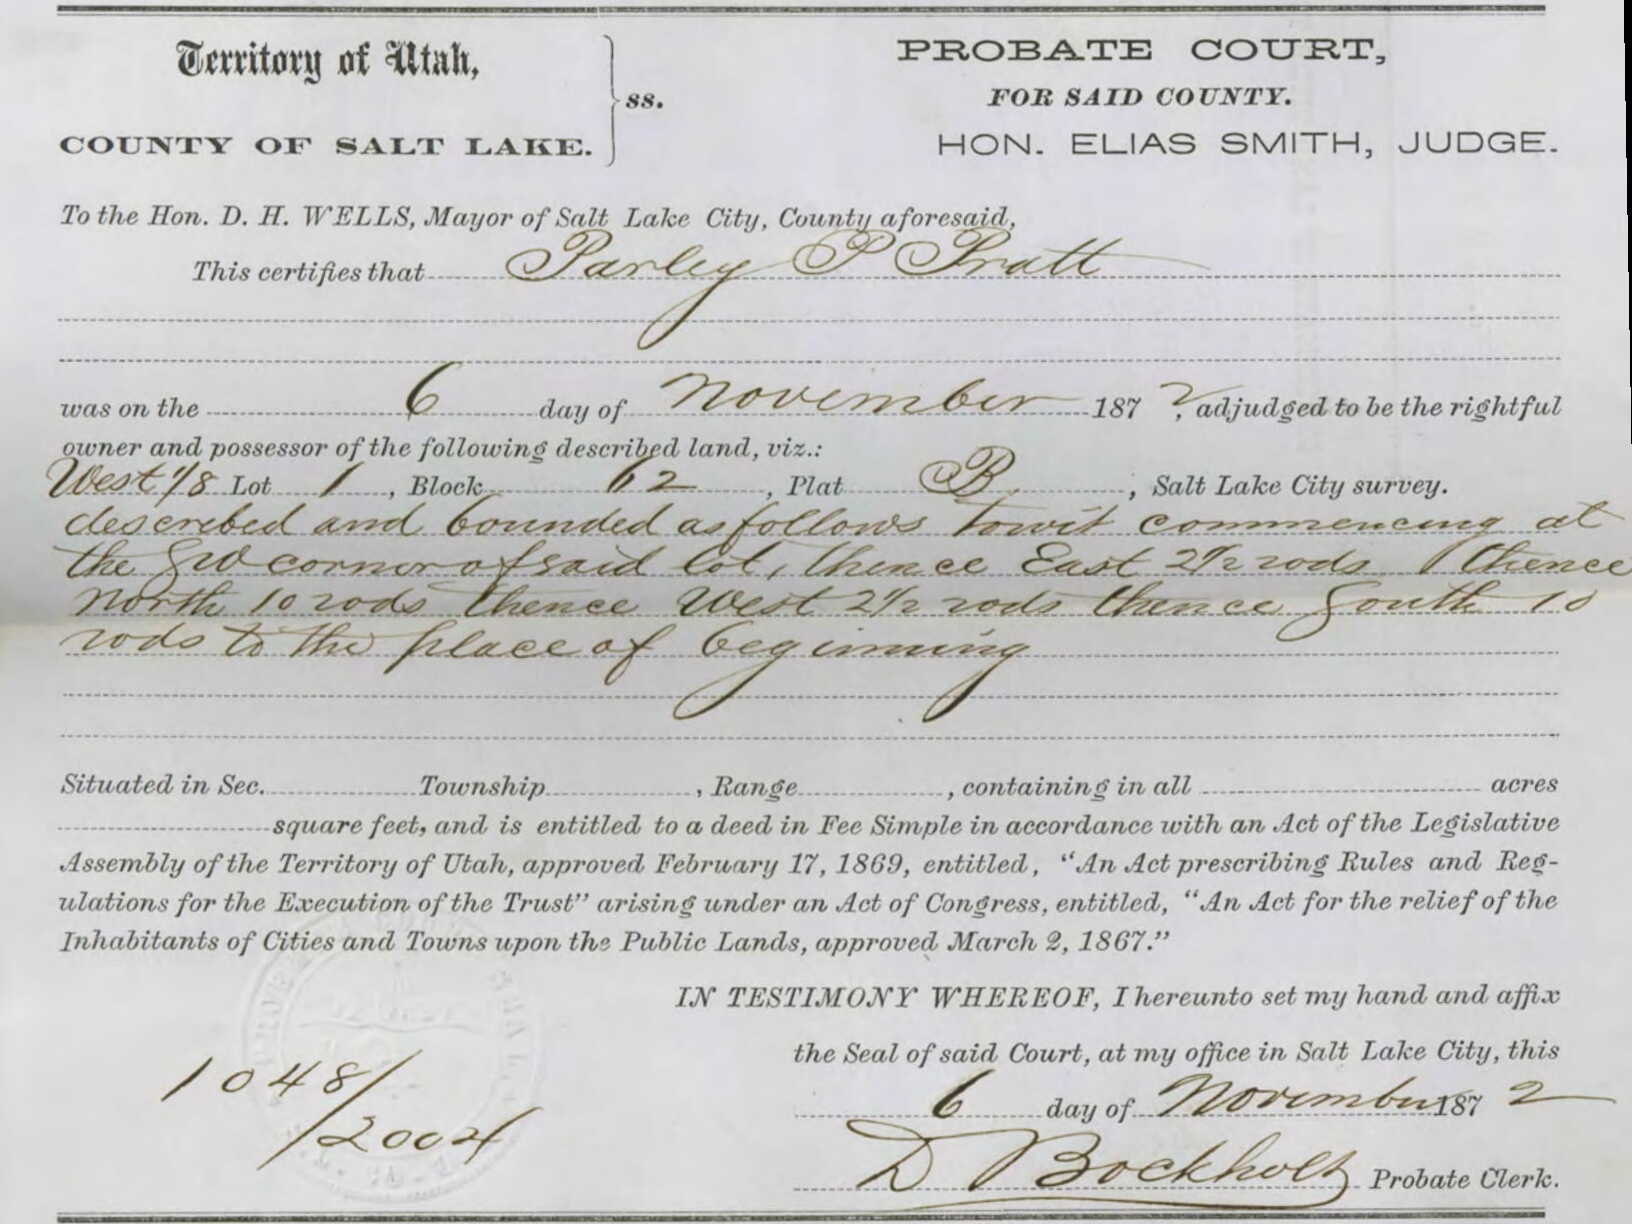 Territory of Utah,
COUNTY OF SALT LAKE.
ss.
PROBATE COURT,
FOR SAID COUNTY.
HON. ELIAS SMITH, JUDGE.
To the Hon. D. H. WELLS, Mayor of Salt Lake City, County aforesaid,
This certifies that Parley P Pratt
was on the 6 day of November 1872, adjudged to be the rightful
owner and possessor of the following described land, viz.:
West 1/8 Lot 1, Block 62, Plat B, Salt Lake City survey.
described and bounded as follows towit commencing at
the SW corner of said lot, thence East 2 1/2 rods thence
North 10 rods thence West 2 1/2 rods thence South 10
rods to the place of beginning
Situated in Sec. Township , Range , containing in all acres
square feet, and is entitled to a deed in Fee Simple in accordance with an Act of the Legislative
Assembly of the Territory of Utah, approved February 17, 1869, entitled, “An Act prescribing Rules and Reg-
ulations for the Execution of the Trust” arising under an Act of Congress, entitled, “An Act for the relief of the
Inhabitants of Cities and Towns upon the Public Lands, approved March 2, 1867.”
IN TESTIMONY WHEREOF, I hereunto set my hand and affix
the Seal of said Court, at my office in Salt Lake City, this
6 day of November 1872
D Bockholt Probate Clerk.
1048/
/2004